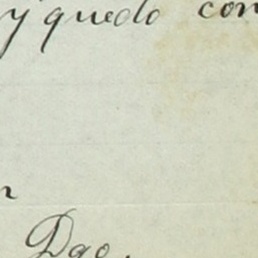 y quedo con
n
Dgo.